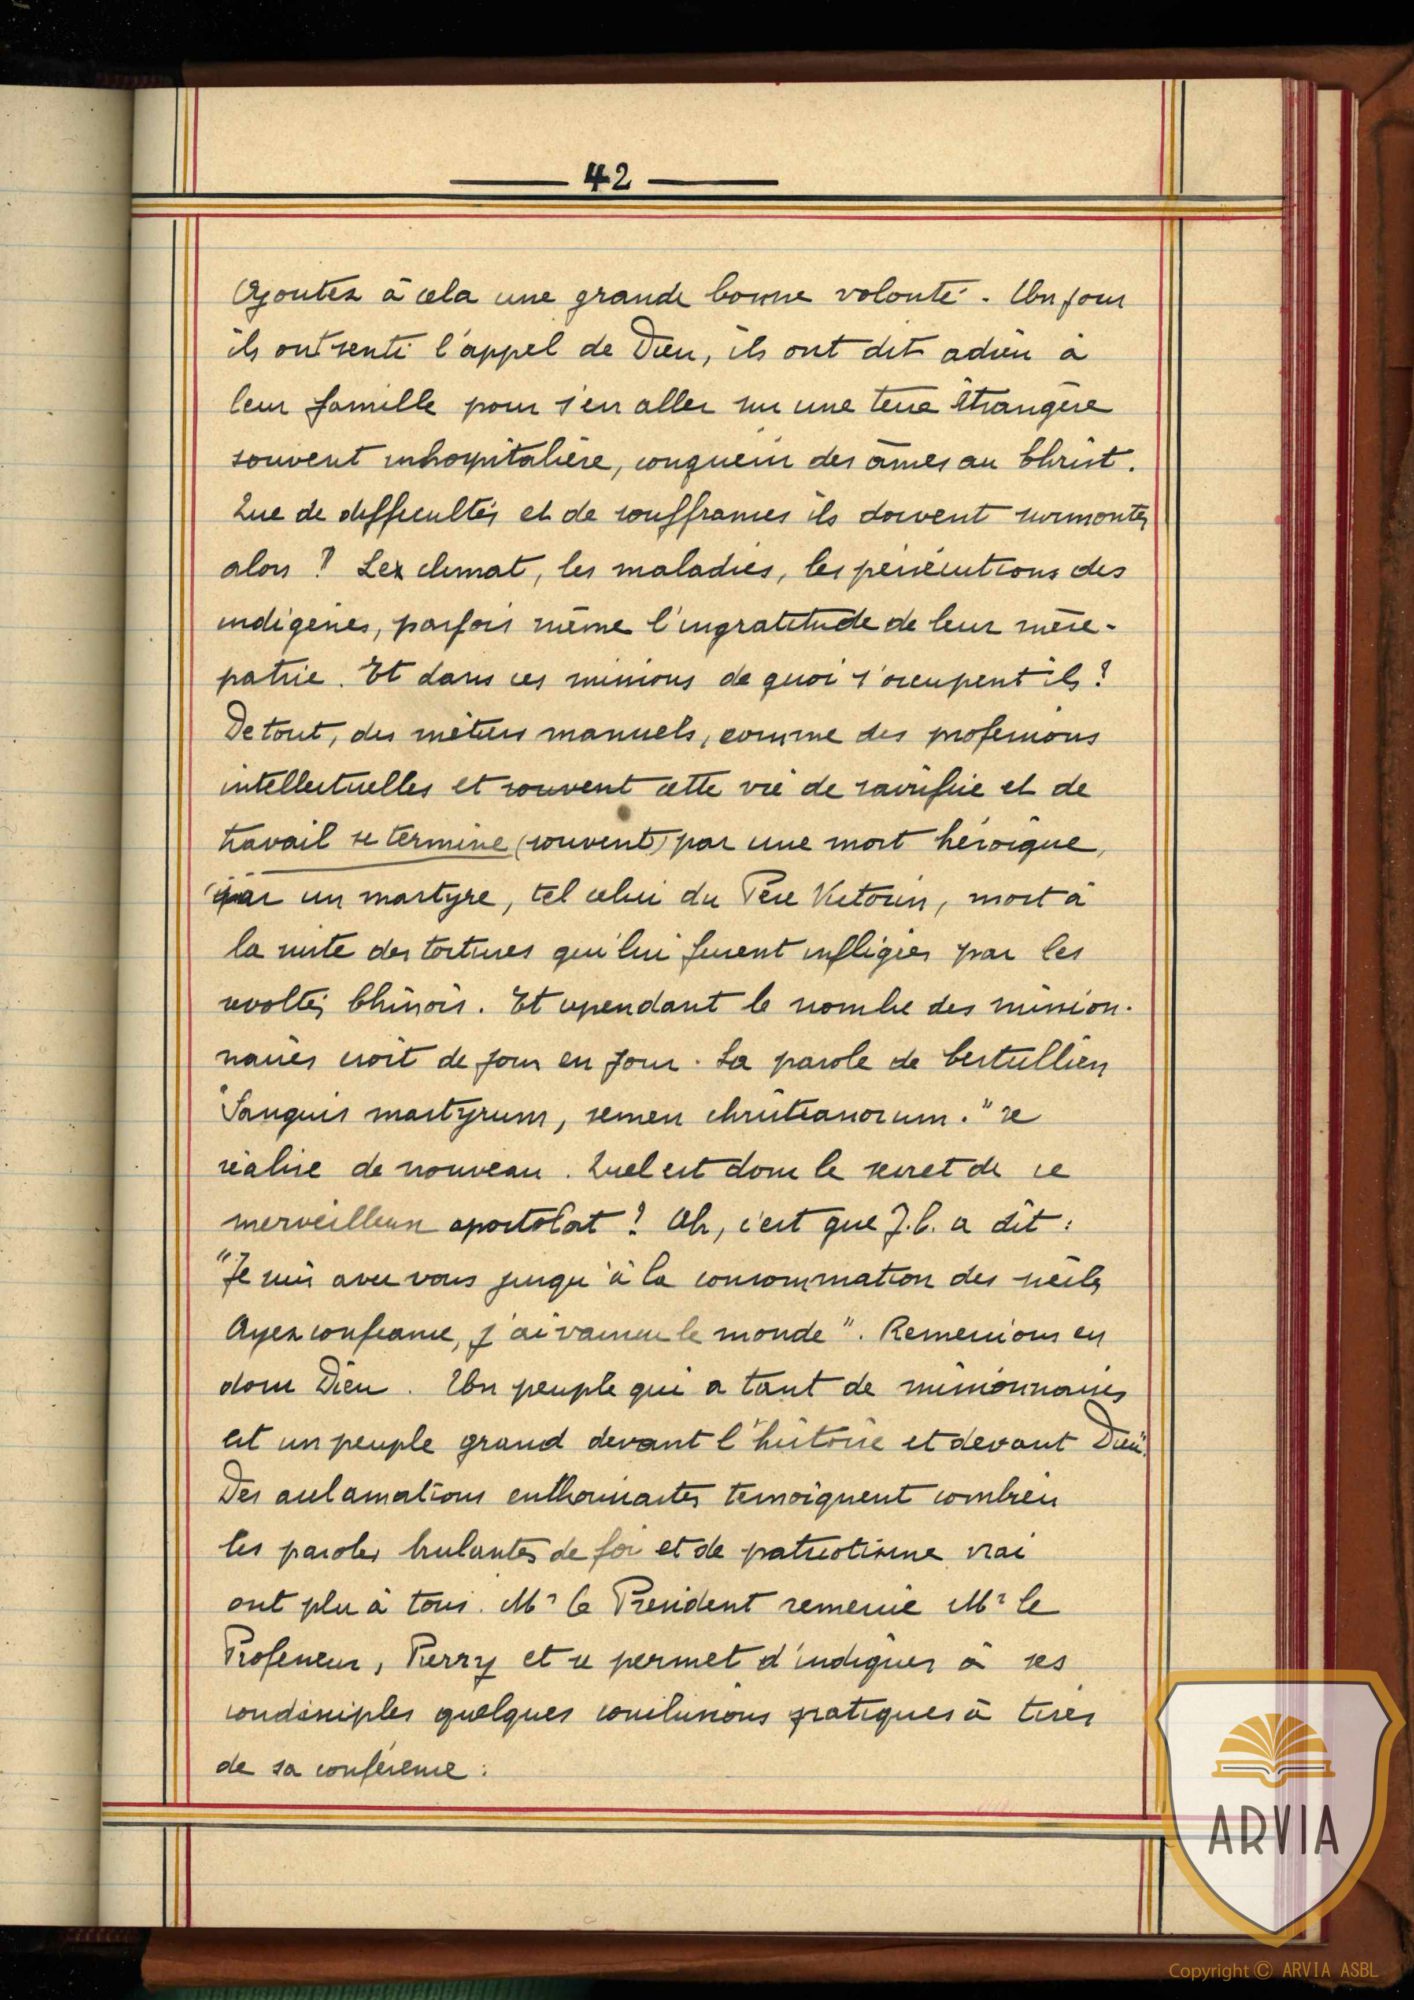 42
Ajoutez à cela une grande bonne volonté. Un jour
ils ont senti l'appel de Dieu, ils ont dit adieu à
leur famille pour s'en aller sur une terre étrangère
souvent inhospitalière, conquérir des âmes au Christ.
Que de difficultés et de souffrances ils doivent surmonter
alors ? Lex climat, les maladies, les persécutions des
indigènes, parfois même l'ingratitude de leur mère-
patrie. Et dans ces missions de quoi s'occupent ils ?
De tout, des métiers manuels, comme des professions
intellectuelles et souvent cette vie de sacrifice et de
travail se termine (souvent) par une mort héroïque,
par un martyre, tel celui du Père Victorin, mort à
la suite des tortures qui lui furent infligées par les
révoltés Chinois. Et cependant le nombre des mission-
naires croît de jour en jour. La parole de Tertullien
"Sanguis martyrum, semen christianorum." se
réalise de nouveau. Quel est donc le secret de ce
merveilleux apostolat ? Ah, c'est que J.C. a dit :
"Je suis avec vous jusqu'à la consommation des siècles
Ayez confiance, j'ai vaincu le monde". Remercions en
donc Dieu. Un peuple qui a tant de missionnaires
est un peuple grand devant l'histoire et devant Dieu".
Des acclamations enthousiastes temoignent combien
les paroles brulantes de foi et de patriotisme vrai
ont plu à tous. Mr le Président remercie Mr le
Professeur, Pierry et se permet d'indiquer à ses
condisciples quelques conclusions pratiques à tirer
de sa conférence :
ARVIA
Copyright © ARVIA ASBL